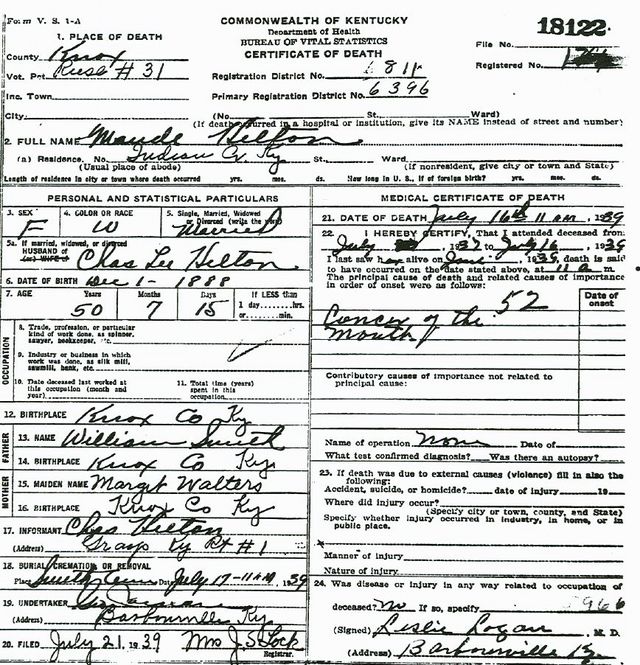 Form V. S. 1-A
COMMONWEALTH OF KENTUCKY
Department of Health
BUREAU OF VITAL STATISTICS
CERTIFICATE OF DEATH
18122
File No.
Registered No.
1. PLACE OF DEATH
County Knox
Vot. Pct. # 31
Inc. Town
Registration District No. 811
Primary Registration District No. 6396
City (No. St. Ward)
(If death occurred in a hospital or institution, give its NAME instead of street and number)
2. FULL NAME Maude Helton
(a) Residence. No. Indian Cr. Ky St. Ward
(Usual place of abode) (If nonresident, give city or town and State)
Length of residence in city or town where death occurred yrs. mos. ds. How long in U. S., if of foreign birth? yrs. mos. ds.
PERSONAL AND STATISTICAL PARTICULARS
3. SEX F
4. COLOR OR RACE W
5. Single, Married, Widowed or Divorced (write the word) Married
5a. If married, widowed, or divorced
HUSBAND of
(or) WIFE of Chas Lee Helton
6. DATE OF BIRTH Dec 1 - 1888
7. AGE Years Months Days If LESS than
50 7 15 1 day hrs.
or min.
OCCUPATION
8. Trade, profession, or particular
kind of work done, as spinner,
sawyer, bookkeeper, etc.
9. Industry or business in which
work was done, as silk mill,
sawmill, bank, etc.
10. Date deceased last worked at
this occupation (month and
year)
11. Total time (years)
spent in this
occupation
12. BIRTHPLACE Knox Co Ky
FATHER
13. NAME William Smith
14. BIRTHPLACE Knox Co Ky
MOTHER
15. MAIDEN NAME Margt Walters
16. BIRTHPLACE Knox Co Ky
17. INFORMANT Chas Helton
(Address) Grays Ky Rt # 1
18. BURIAL, CREMATION OR REMOVAL
Place Smith Cem Date July 17 - 11 AM, 1939
19. UNDERTAKER
(Address) Barbourville Ky
20. FILED July 21, 1939 Mrs J. S. Lock
Registrar.
MEDICAL CERTIFICATE OF DEATH
21. DATE OF DEATH July 16th 11 am, 1939
22. I HEREBY CERTIFY, That I attended deceased from
July, 1937 to July 16, 1939
I last saw her alive on June, 1939, death is said
to have occurred on the date stated above, at 11 a m.
The principal cause of death and related causes of importance
in order of onset were as follows:
Date of
onset
52
Cancer of the
Mouth
Contributory causes of importance not related to
principal cause:
Name of operation None Date of
What test confirmed diagnosis? Was there an autopsy?
23. If death was due to external causes (violence) fill in also the
following:
Accident, suicide, or homicide? date of injury 19
Where did injury occur?
(Specify city or town, county, and State)
Specify whether injury occurred in industry, in home, or in
public place.
Manner of injury
Nature of injury
24. Was disease or injury in any way related to occupation of
deceased? No If so, specify 966
(Signed) Leslie Logan, M. D.
(Address) Barbourville Ky